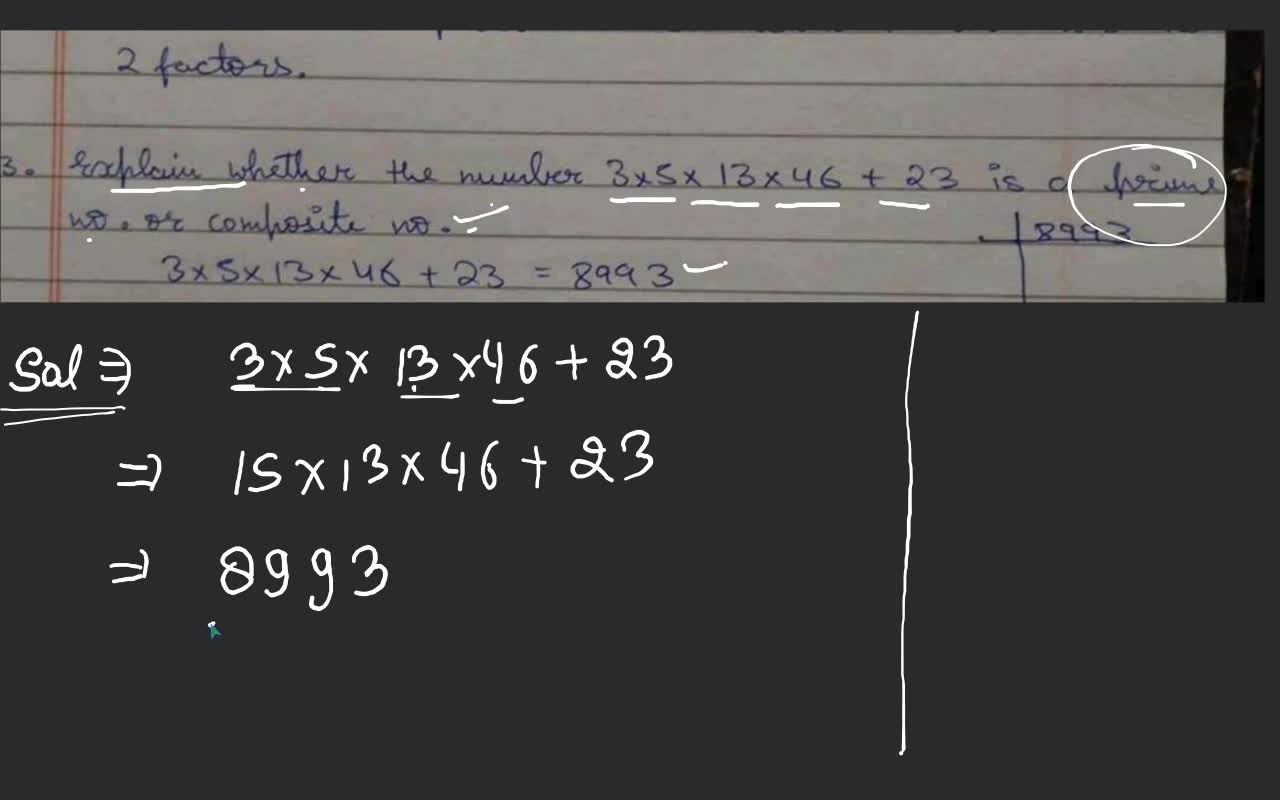 2 factors.
3. Explain whether the number 3×5×13×46 + 23 is a prime
no. or composite no.
8993
3×5×13×46 + 23 = 8993
Sol ⇒ 3×5×13×46+23
⇒ 15×13×46+23
⇒ 8993